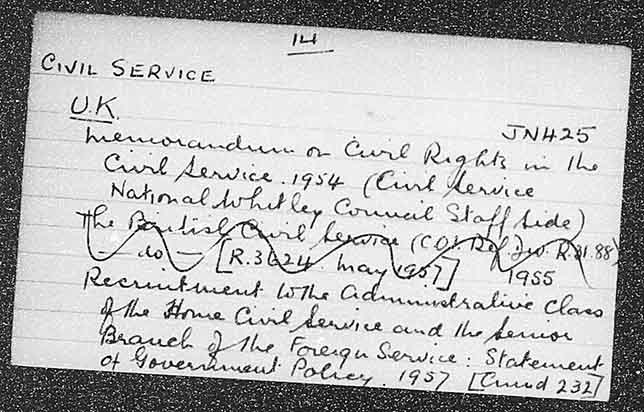 14
CIVIL SERVICE
U.K.
JN425
Memorandum on Civil Rights in the
Civil Service. 1954 (Civil Service
National Whitley Council Staff Side)
The British Civil Service (COI Ref. Div. R.31.88)
— do — [R.3624. May 1957] 1955
Recruitment to the Administrative Class
of the Home Civil Service and the Senior
Branch of the Foreign Service: Statement
of Government Policy. 1957 [Cmnd 232]